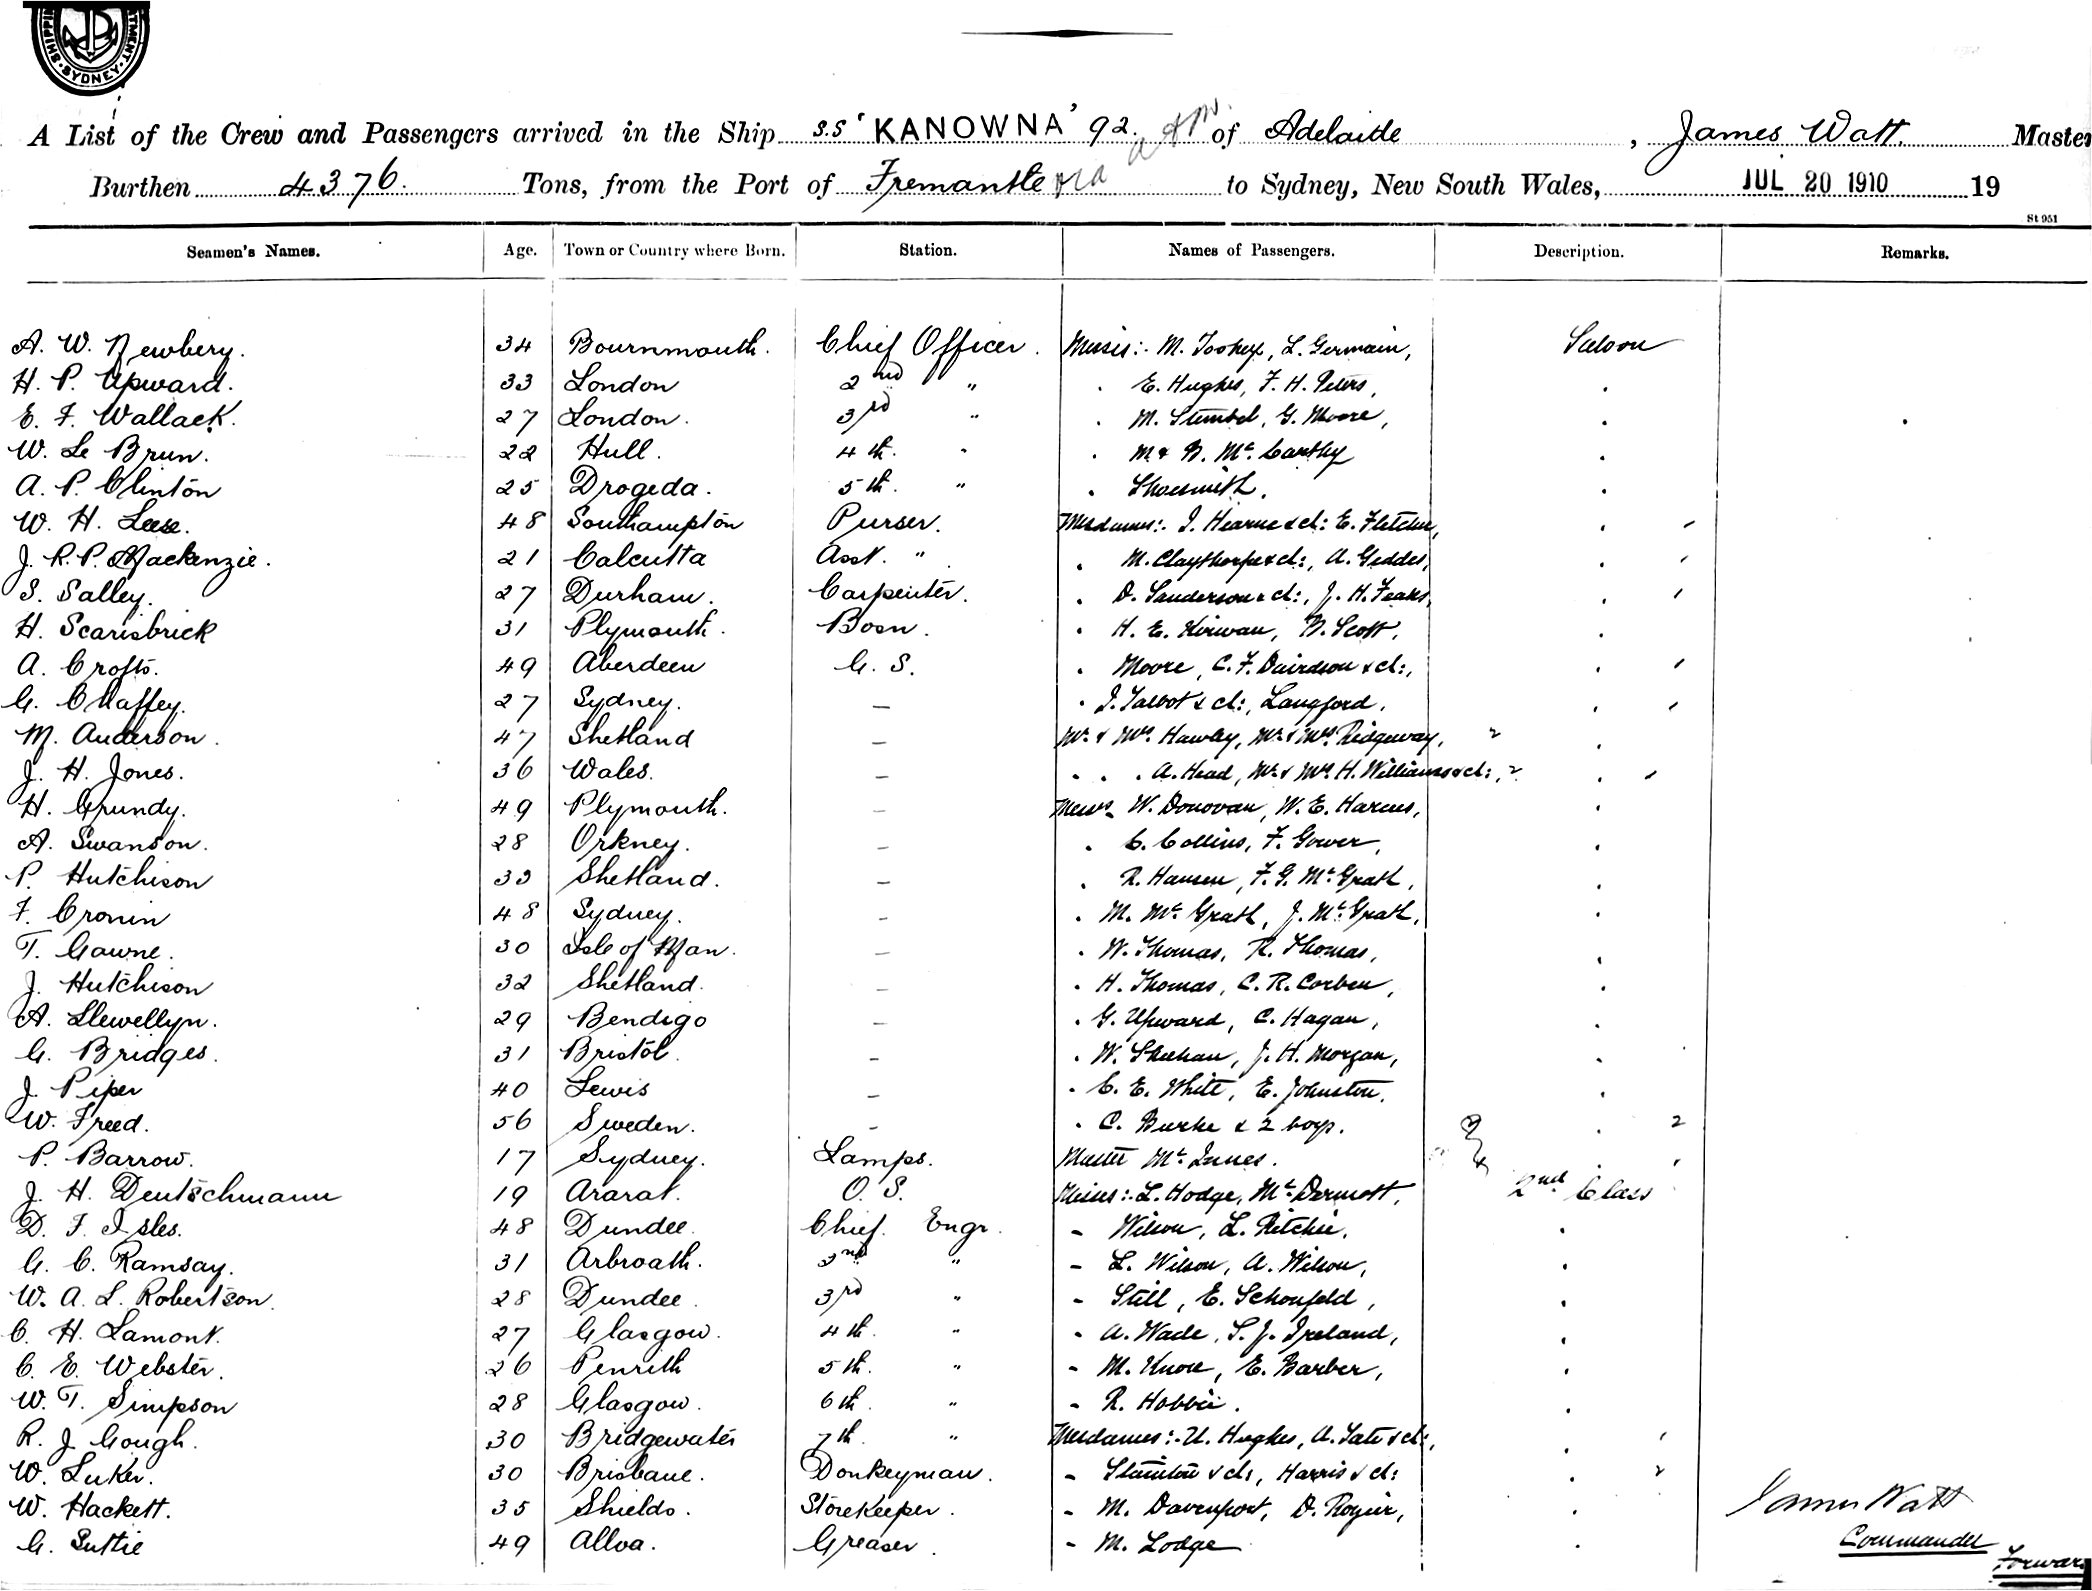 SHIPPING DEPARTMENT SYDNEY
A List of the Crew and Passengers arrived in the Ship S.S 'KANOWNA' 92. of Adelaide, James Watt. Master
Burthen 4376. Tons, from the Port of Fremantle via to Sydney, New South Wales, JUL 20 1910 19
St 951
Seamen's Names. Age. Town or Country where Born. Station. Names of Passengers. Description. Remarks.
A. W. Newbery. 34 Bournmouth. Chief Officer. Misses:- M. Tookey, L. Germain, Saloon
H. P. Upward. 33 London 2nd " E. Hughes, F. H. Peters,
E. F. Wallack. 27 London. 3rd " M. Stumbel, G. Moore,
W. Le Brun. 22 Hull. 4th. " M & B. Mc. Carthy
A. P. Clinton 25 Drogeda. 5th. " Shoesmith.
W. H. Leese. 48 Southampton Purser. Mesdames:. I. Hearne & ch: E. Fletcher,
J. R. P. Mackenzie. 21 Calcutta Asst. " M. Claythorpe & ch:, A. Geddes,
S. Salley. 27 Durham. Carpenter. D. Sanderson & ch:, J. H. Feaks,
H. Scarisbrick 31 Plymouth. Bosn. H. E. Kirwan, N. Scott,
A. Crofts. 49 Aberdeen G. S. Moore, C. F. Davidson & ch:,
G. Chaffey. 27 Sydney. — J. Talbot & ch:, Langford,
M. Anderson. 47 Shetland — Mr. & Mrs. Hawley, Mr. & Mrs. Ridgeway, 2
J. H. Jones. 36 Wales. — A. Head, Mr. & Mrs. H. Williams & ch:, 2
H. Grundy. 49 Plymouth. — Messrs. W. Donovan, W. E. Harcus,
A. Swanson. 28 Orkney. — C. Collins, F. Gower,
P. Hutchison 33 Shetland. — R. Hansen, F. G. Mc. Grath,
F. Cronin 48 Sydney. — M. Mc. Grath, J. Mc. Grath,
T. Gawne. 30 Isle of Man. — W. Thomas, R. Thomas,
J. Hutchison 32 Shetland. — H. Thomas, C. R. Corben,
A. Llewellyn. 29 Bendigo — G. Upward, C. Hagan,
G. Bridges. 31 Bristol. — W. Sheehan, J. H. Morgan,
J. Piper 40 Lewis — C. E. White, E. Johnston,
W. Freed. 56 Sweden. — C. Burke & 2 boys. 2
P. Barrow. 17 Sydney. Lamps. Master Mc. Innes.
J. H. Deutschmann 19 Ararat. O. S. Misses:. L. Hodge, Mc. Dermott, 2nd Class
D. F. Isles. 48 Dundee Chief. Engr. - Wilson, L. Ritchie,
G. C. Ramsay. 31 Arbroath. 2nd " - L. Wilson, A. Wilson,
W. A. L. Robertson. 28 Dundee. 3rd " - Still, E. Schonfeld,
C. H. Lamont. 27 Glasgow. 4th. " - A. Wade, S. J. Ireland,
C. E. Webster. 26 Penrith 5th. " - M. Knore, E. Barber,
W. T. Simpson 28 Glasgow. 6th. " - R. Hobbis.
R. J. Gough. 30 Bridgewater 7th. " Mesdames:. U. Hughes, A. Tate & ch:,
W. Luker. 30 Brisbane. Donkeyman. - Stainton & ch:, Harris & ch: 2
W. Hackett. 35 Shields. Storekeeper. - M. Davenport, D. Rogier, James Watt
G. Suttie 49 Alloa. Greaser. - M. Lodge Commander
Forward